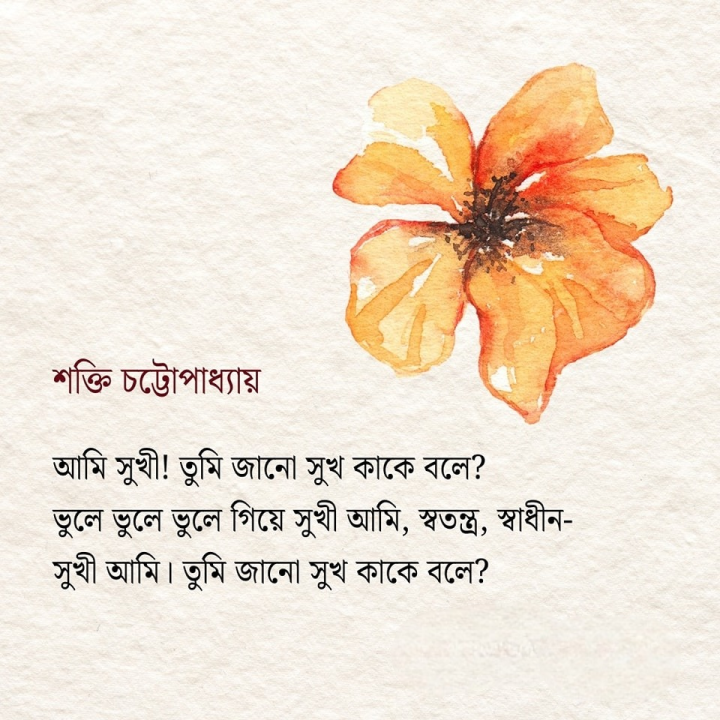 শক্তি চট্টোপাধ্যায়
আমি সুখী! তুমি জানো সুখ কাকে বলে?
ভুলে ভুলে ভুলে গিয়ে সুখী আমি, স্বতন্ত্র, স্বাধীন-
সুখী আমি। তুমি জানো সুখ কাকে বলে?